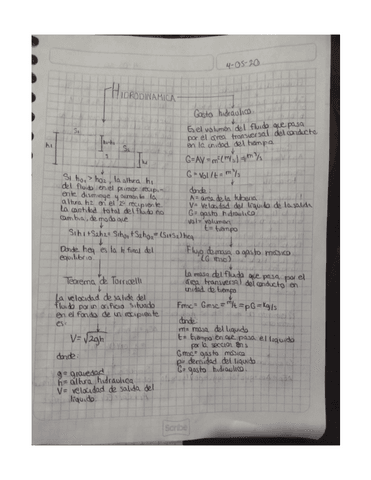 4-05-20
HIDRODINAMICA
S1
h1
S2
h2
Si h01 > h02, la altura h1
del fluido en el primer recipi-
ente disminuye y aumenta la
altura h2 en el 2º recipiente
La cantidad total del fluido no
cambia, de modo que
Donde heq es la h final del
equilibrio
Teorema de Torricelli
La velocidad de salida del
fluido por un orificio situado
en el fondo de un recipiente
es:
V=√2gh
donde
g= gravedad
h= altura hidraulica
V= velocidad de salida del
liquido.
Gasto hidraulico
Es el volumen del fluido que pasa
por el area transversal del conducto
en la unidad del tiempo
G= AV = m² (m/s) = m³/s
G= Vol/t = m³/s
donde
A= area de la tuberia
V= velocidad del liquido de la salida
G= gasto hidraulico
vol= volumen
t= tiempo
Flujo de masa o gasto másico
La masa del fluido que pasa por el
área transversal del conducto en
unidad de tiempo
Fmc= Gmsc = m/t = pG = kg/s
donde
m= masa del liquido
t= tiempo en que pasa el liquido
por la sección
Gmsc= gasto másico
p= densidad del liquido
G= gasto hidraulico